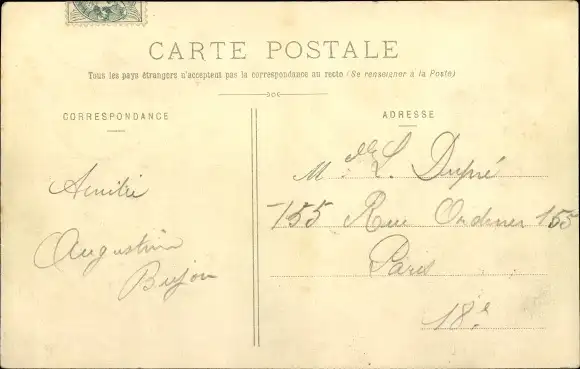 CARTE POSTALE
Tous les pays étrangers n'acceptent pas la correspondance au recto (Se renseigner à la Poste)
CORRESPONDANCE
ADRESSE
Amitié
Augustin
Bujon
M elle L. Dupré
155 Rue Ordener 155
Paris
18e